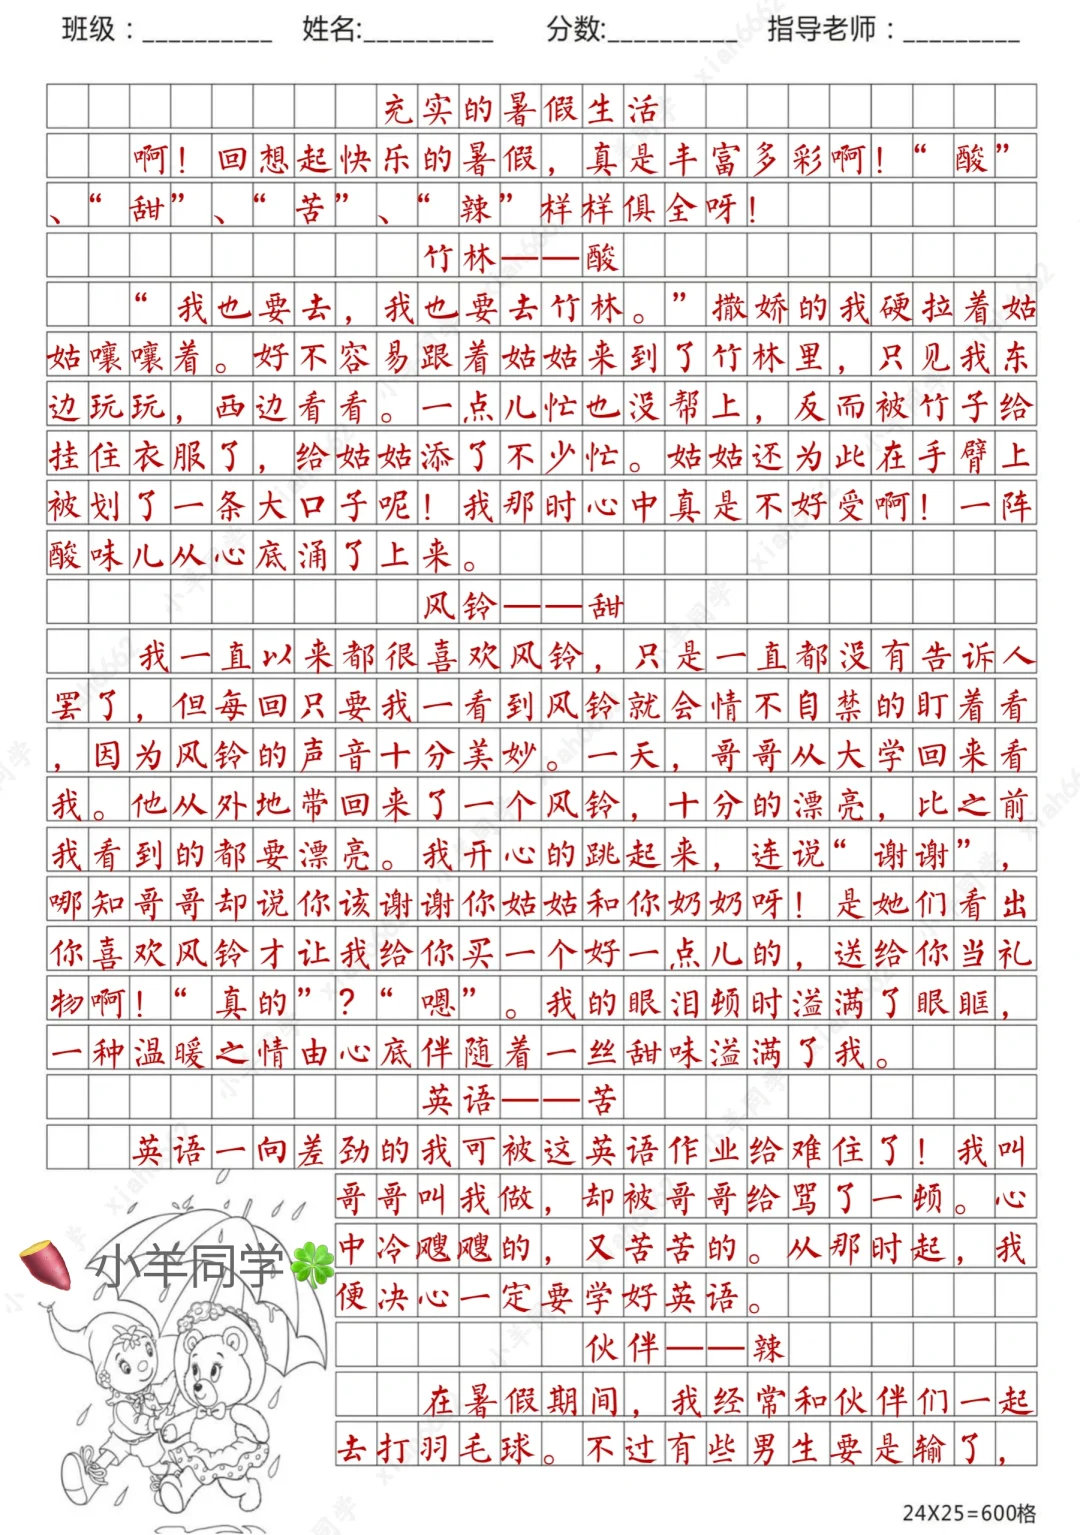 班级：__________ 姓名:__________ 分数:__________ 指导老师：_________
充实的暑假生活
啊！回想起快乐的暑假，真是丰富多彩啊！“酸”
、“甜”、“苦”、“辣”样样俱全呀！
竹林——酸
“我也要去，我也要去竹林。”撒娇的我硬拉着姑
姑嚷嚷着。好不容易跟着姑姑来到了竹林里，只见我东
边玩玩，西边看看。一点儿忙也没帮上，反而被竹子给
挂住衣服了，给姑姑添了不少忙。姑姑还为此在手臂上
被划了一条大口子呢！我那时心中真是不好受啊！一阵
酸味儿从心底涌了上来。
风铃——甜
我一直以来都很喜欢风铃，只是一直都没有告诉人
罢了，但每回只要我一看到风铃就会情不自禁的盯着看
，因为风铃的声音十分美妙。一天，哥哥从大学回来看
我。他从外地带回来了一个风铃，十分的漂亮，比之前
我看到的都要漂亮。我开心的跳起来，连说“谢谢”，
哪知哥哥却说你该谢谢你姑姑和你奶奶呀！是她们看出
你喜欢风铃才让我给你买一个好一点儿的，送给你当礼
物啊！“真的”？“嗯”。我的眼泪顿时溢满了眼眶，
一种温暖之情由心底伴随着一丝甜味溢满了我。
英语——苦
英语一向差劲的我可被这英语作业给难住了！我叫
哥哥叫我做，却被哥哥给骂了一顿。心
中冷飕飕的，又苦苦的。从那时起，我
便决心一定要学好英语。
伙伴——辣
在暑假期间，我经常和伙伴们一起
去打羽毛球。不过有些男生要是输了，
小羊同学
24X25=600格